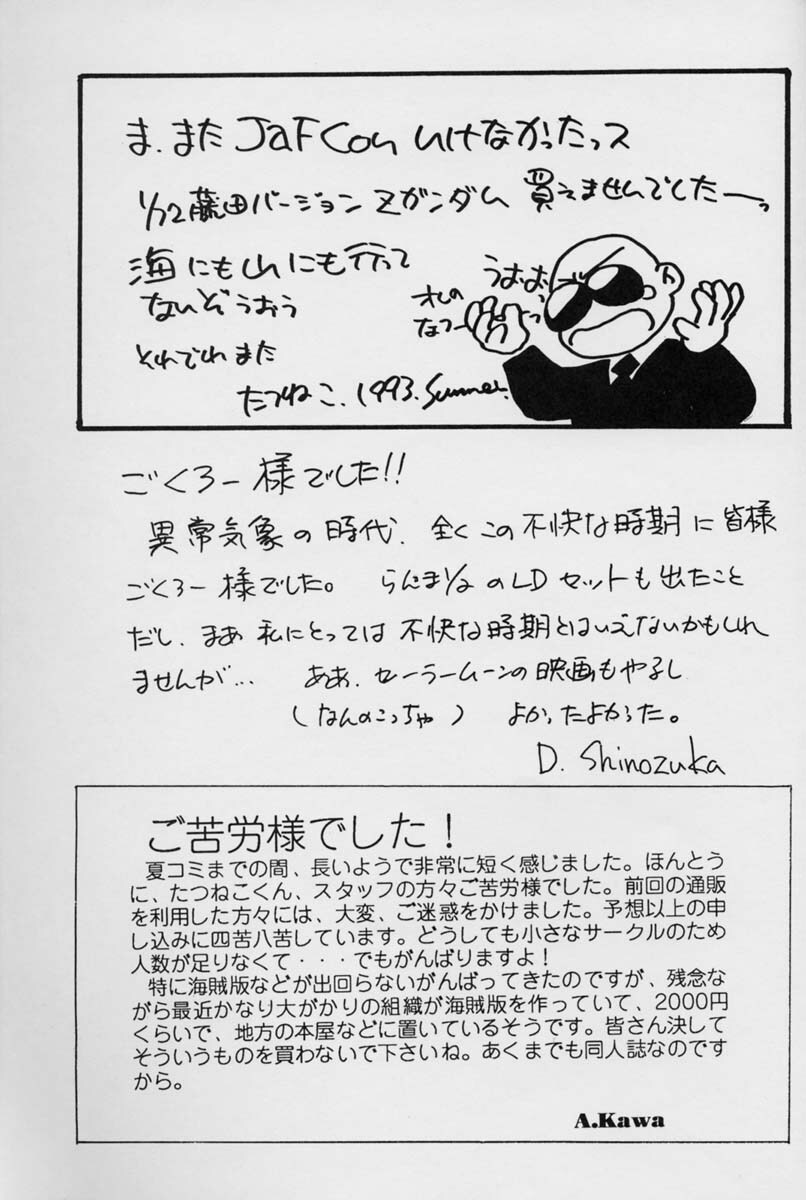 ま、また JaFCon いけなかったっス
1/72藤田バージョン Zガンダム 買えませんでしたーっ
海にも山にも行って
ないぞ うおう
それでわ また
たつねこ. 1993. Summer.
うおおっ
オレの
なつー
ごくろー様でした!!
異常気象の時代、全くこの不快な時期に皆様
ごくろー様でした。 らんま1/2のLDセットも出たこと
だし、まあ私にとっては不快な時期とはいえないかもしれ
ませんが… ああ、セーラームーンの映画もやるし
(なんのこっちゃ) よかったよかった。
D. Shinozuka
ご苦労様でした!
夏コミまでの間、長いようで非常に短く感じました。ほんとう
に、たつねこくん、スタッフの方々ご苦労様でした。前回の通販
を利用した方々には、大変、ご迷惑をかけました。予想以上の申
し込みに四苦八苦しています。どうしても小さなサークルのため
人数が足りなくて・・・でもがんばりますよ!
特に海賊版などが出回らないがんばってきたのですが、残念な
がら最近かなり大がかりの組織が海賊版を作っていて、2000円
くらいで、地方の本屋などに置いているそうです。皆さん決して
そういうものを買わないで下さいね。あくまでも同人誌なのです
から。
A.Kawa